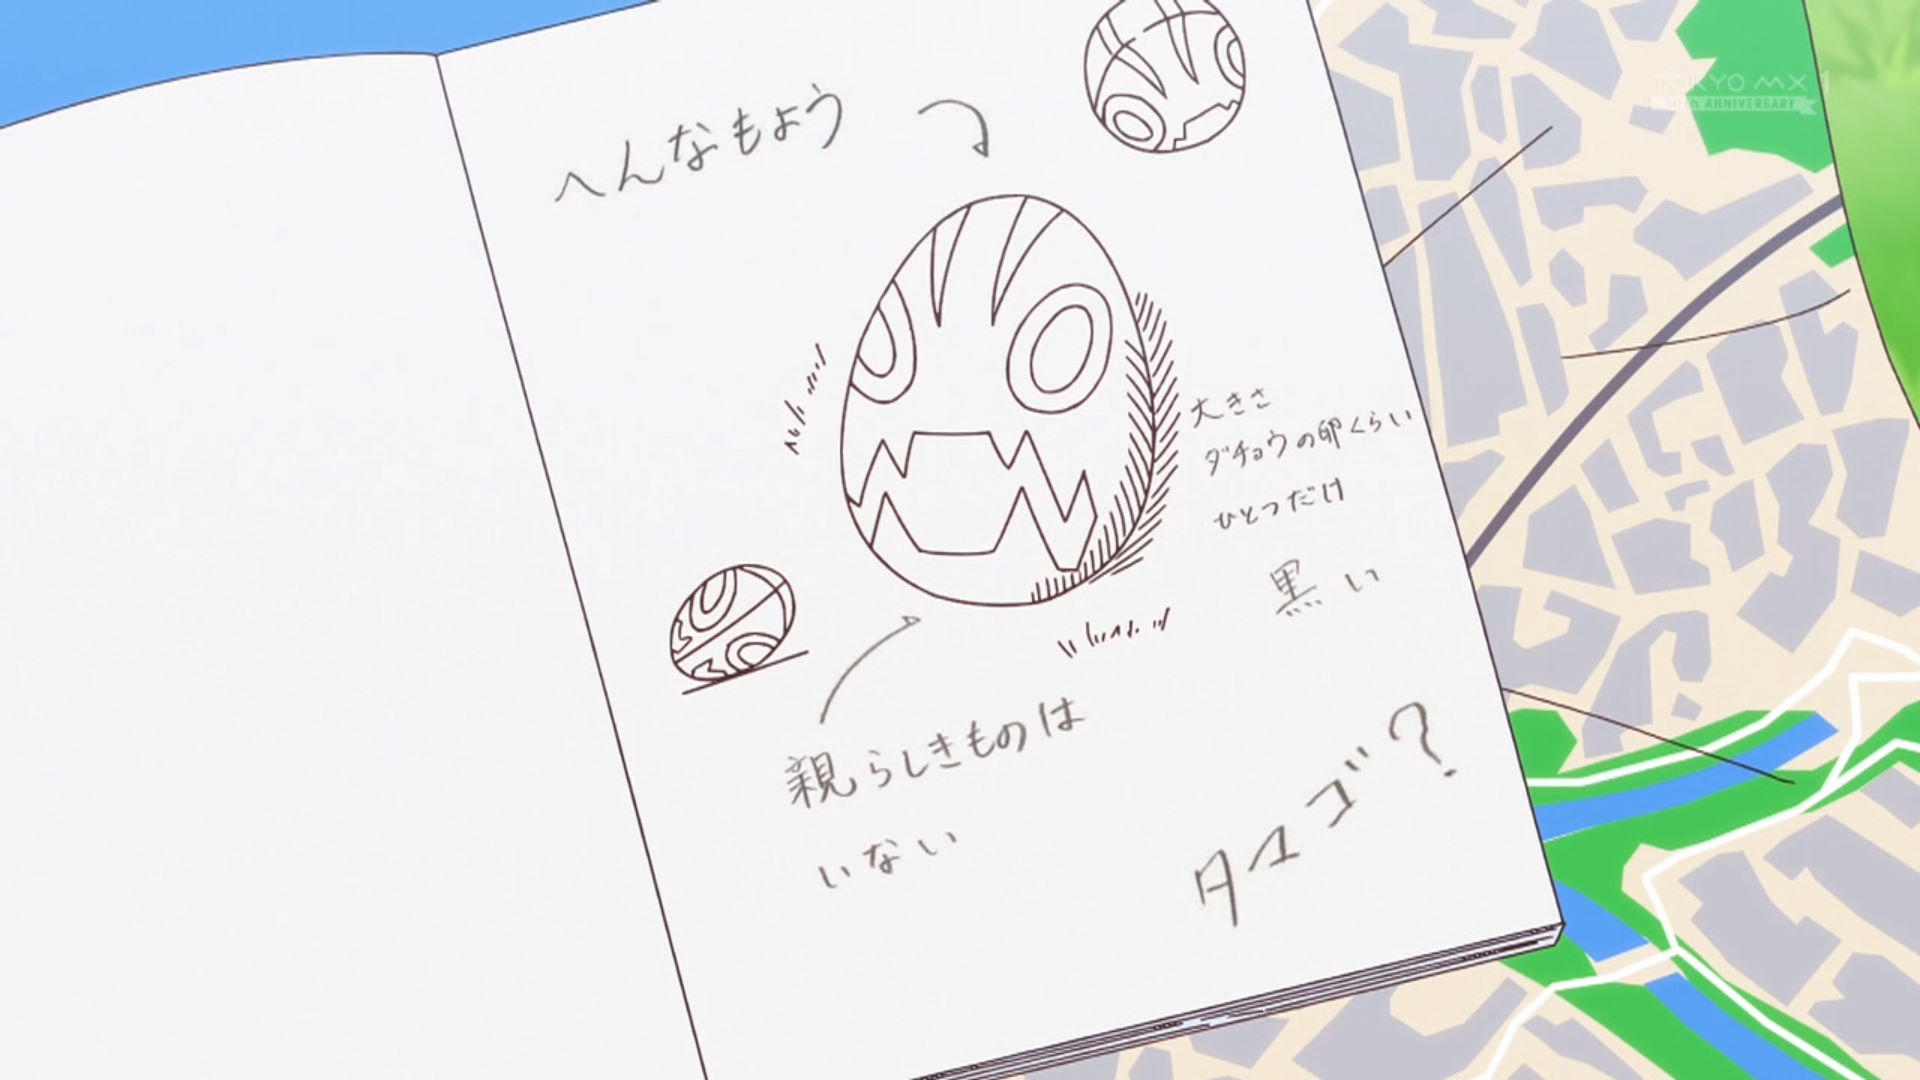 TOKYO MX 1
10th ANNIVERSARY
へんなもよう
大きさ
ダチョウの卵くらい
ひとつだけ
黒い
親らしきものは
いない
タマゴ?